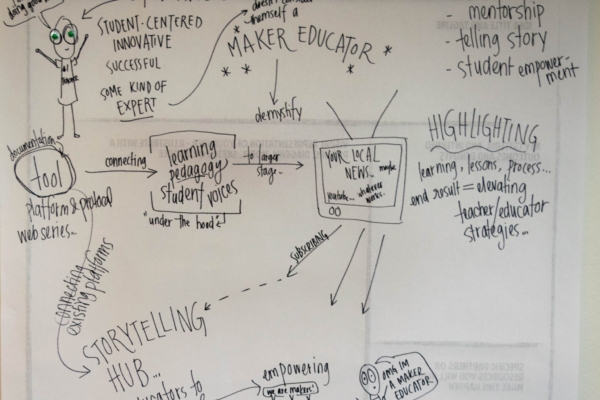 being
STUDENT-CENTERED
INNOVATIVE
SUCCESSFUL
SOME KIND OF
EXPERT
doesn't consider
themself a
* MAKER EDUCATOR *
demystify
- mentorship
- telling story
- student empower-
ment
documentation
tool
platform & protocol
web series..
connecting
learning
pedagogy
student voices
"under the hood"
to larger
stage..
YOUR LOCAL
NEWS..
maybe
youtube...
whatever
works..
HIGHLIGHTING
learning, lessons, process...
end result = elevating
teacher/educator
strategies..
SUBSCRIBING
connecting
existing platforms
STORYTELLING
HUB...
educators to
empowering
we are makers!
OMG IM
A MAKER
EDUCATOR